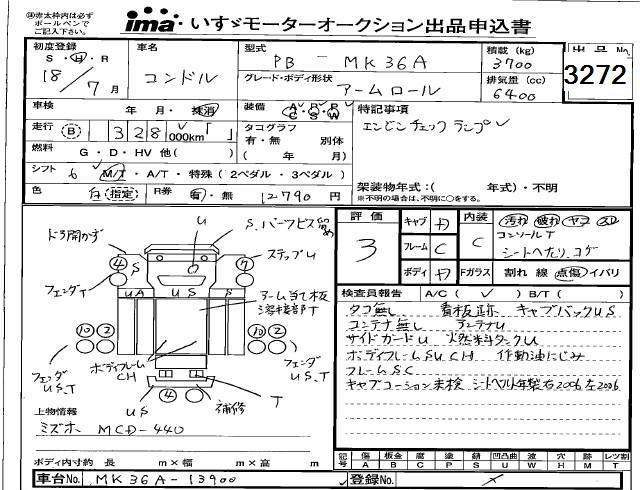 ㊟赤太枠内は必ず
ボールペンで
ご記入下さい。
ima いすゞモーターオークション出品申込書
初度登録
S・H・R
18年 7月
車名
コンドル
型式
PB - MK36A
グレード・ボディ形状
アームロール
積載 (kg)
3700
排気量 (cc)
6400
出品No.
3272
車検 年・月・検 消
装備 A P P
C S W
特記事項
エンジンチェックランプ
走行 (B) 328,000km「 」
タコグラフ
有・無 別体
( 年 月)
燃料 G・D・HV 他( )
シフト 6 M/T・A/T・特殊(2ペダル・3ペダル)
架装物年式:( 年式)・不明
※不明の場合は、不明に○をする。
色 白 指定
R券 有・無 12790円
評価
3
キャブ D
フレーム C
ボディ D
内装 C
汚れ 破れ ヤケ スレ
コンソールT
シートへたり、コゲ
Fガラス 割れ 線 点傷 イバリ
検査員報告 A/C( ✓ ) B/T( )
タコ無し 看板跡 キャブバックUS
コンテナ無し アンテナU
サイドガードU 燃料タンクU
ボディフレームSUCH 作動油にじみ
フレームSC
キャブコーション未検 シートベルト年製右2006 左2006
ドラ開かず
U
S.パーツビス留め
ステップU
フェンダT
④
S
S
⑦
UA
U S
S
アーム当て板
溶接部T
⑩ ②
⑩ ②
フェンダ
US.T
ボディフレーム
CH
フェンダ
US.T
US
④
補修
T
上物情報
ミズホ MCD-440
ボディ内寸約 長 m×幅 m×高 m
記号
傷 板金 腐 塗 錆 凹凸曲 波 穴 跡 レツ割
A B C P S U W H M T
車台No. MK36A-13900
登録No.